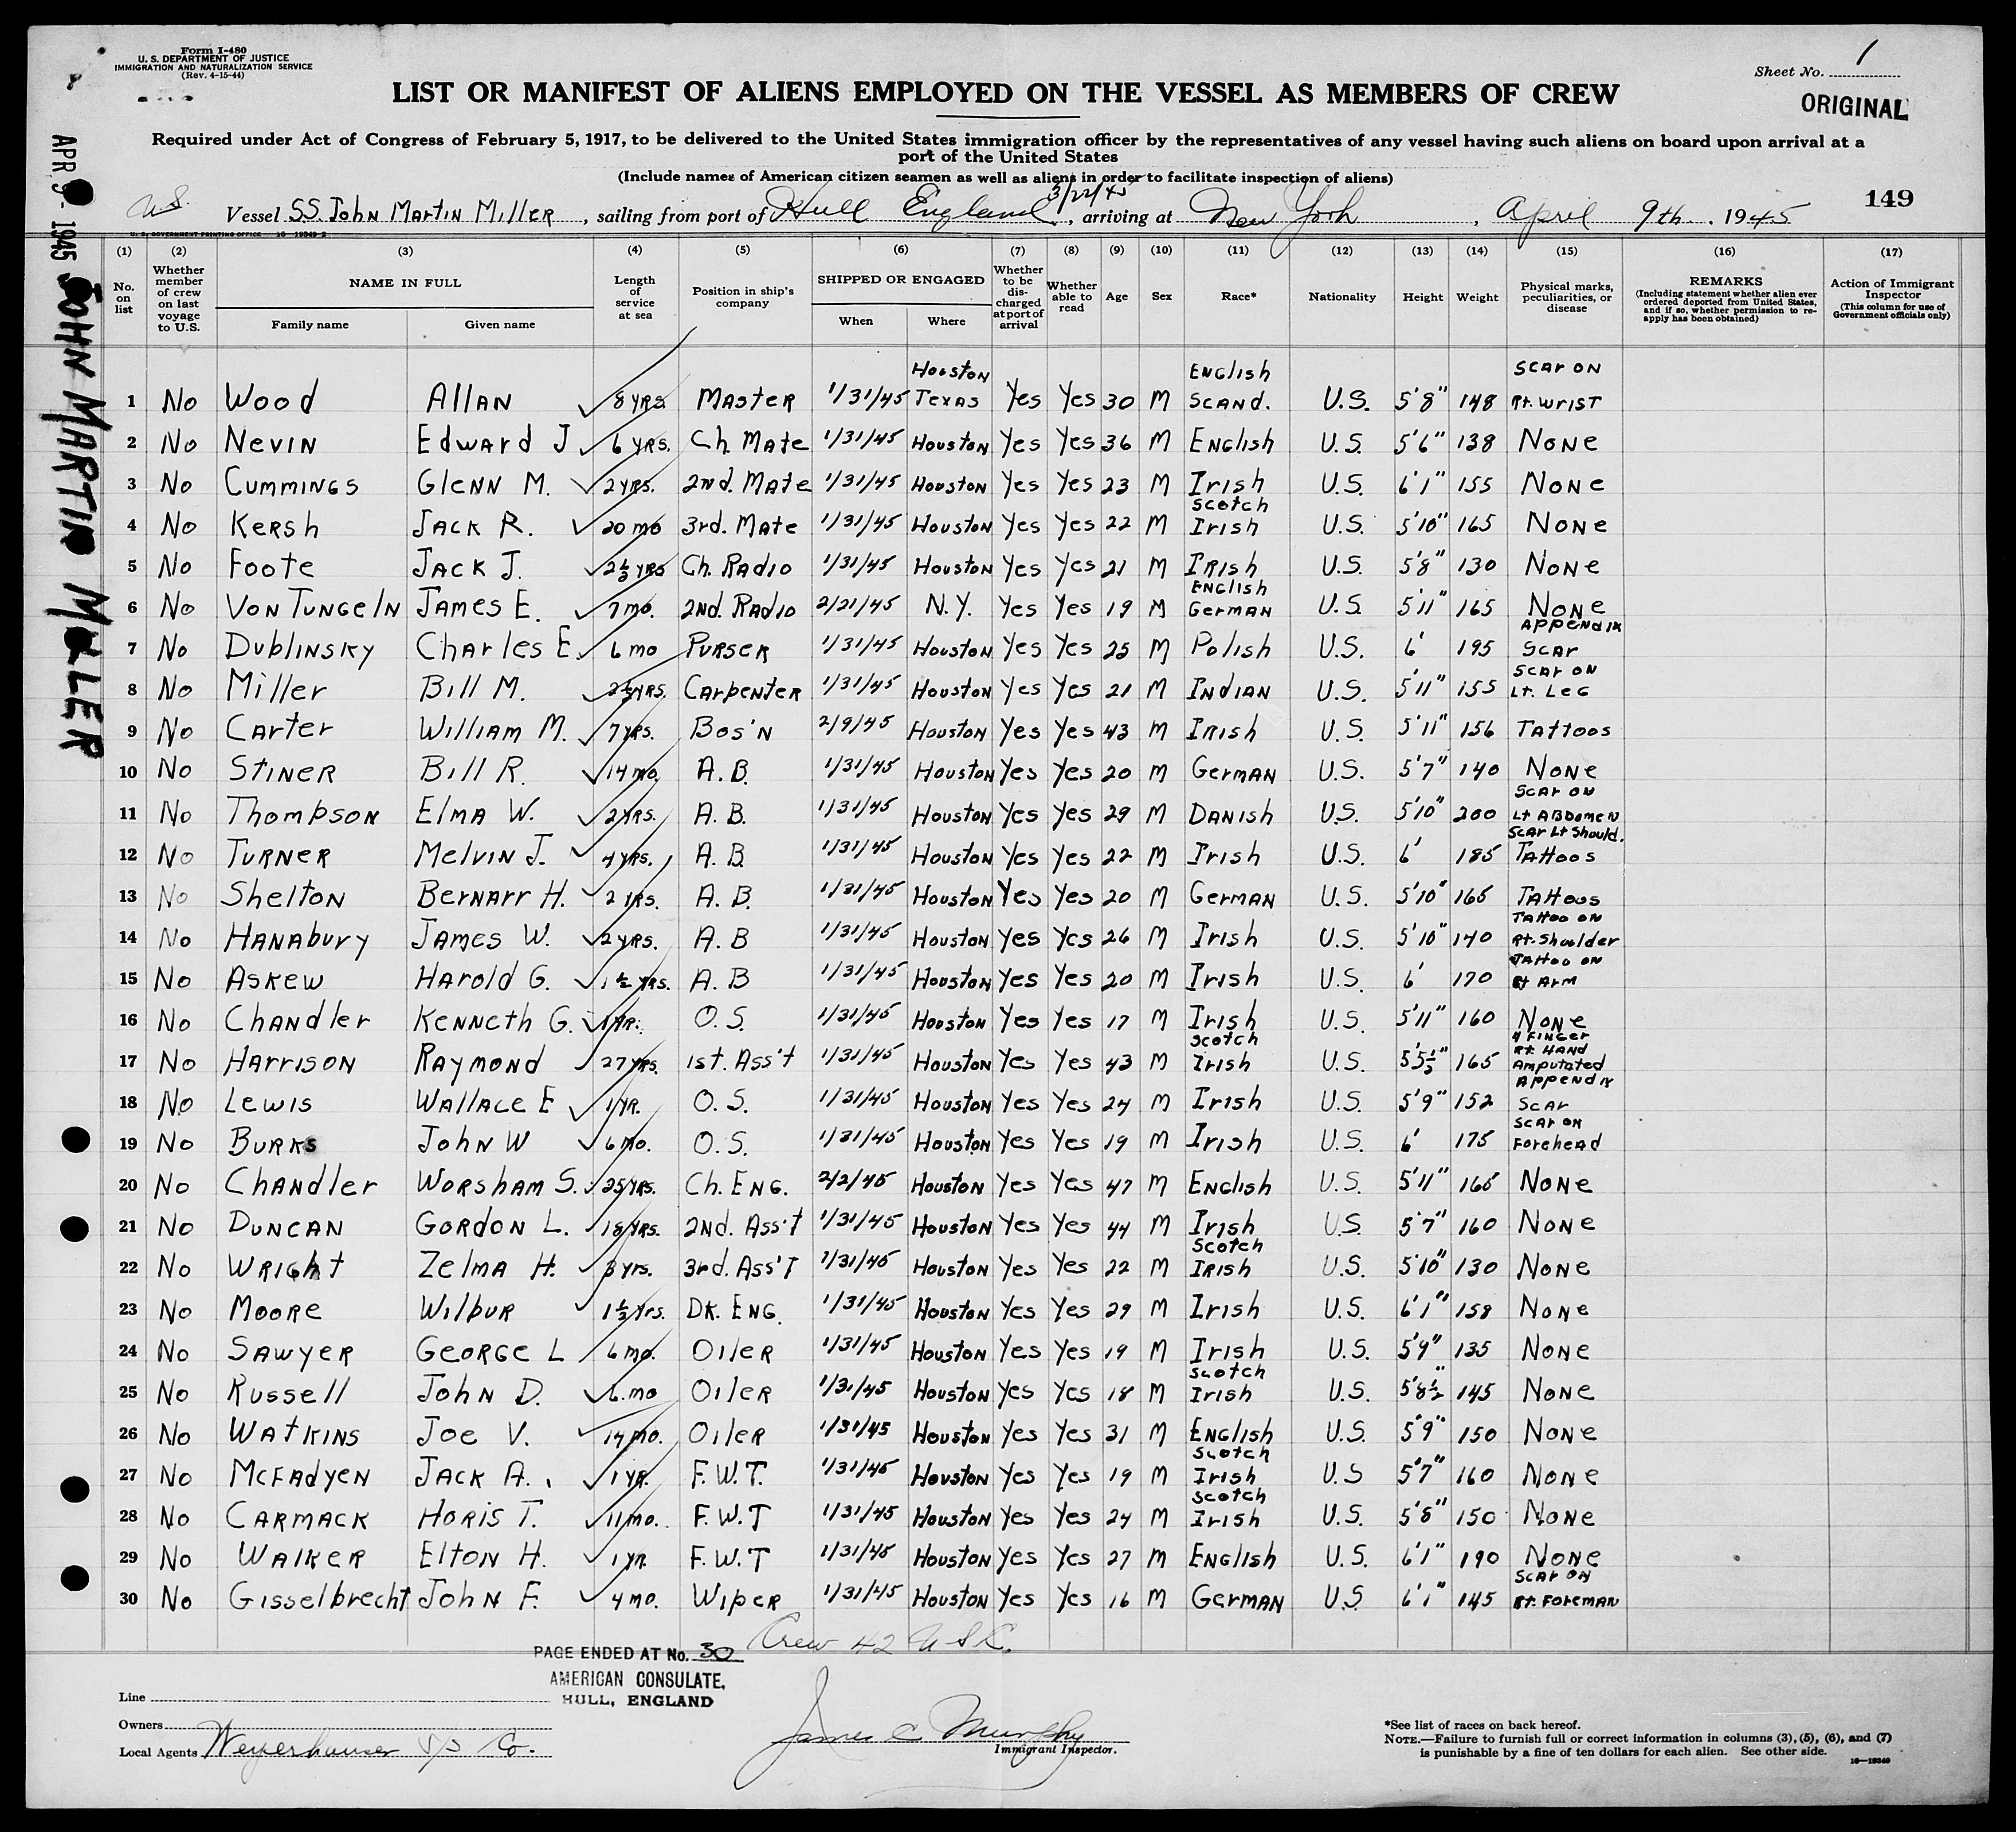 Form I-480
U. S. DEPARTMENT OF JUSTICE
IMMIGRATION AND NATURALIZATION SERVICE
(Rev. 4-15-44)
Sheet No. 1
LIST OR MANIFEST OF ALIENS EMPLOYED ON THE VESSEL AS MEMBERS OF CREW
ORIGINAL
Required under Act of Congress of February 5, 1917, to be delivered to the United States immigration officer by the representatives of any vessel having such aliens on board upon arrival at a
port of the United States
(Include names of American citizen seamen as well as aliens in order to facilitate inspection of aliens)
3/22/45
149
U.S. Vessel S.S. John Martin Miller, sailing from port of Hull England, arriving at New York, April 9th, 1945
U. S. GOVERNMENT PRINTING OFFICE
APR 9 1945 JOHN MARTIN MILLER
(1) (2) (3) (4) (5) (6) (7) (8) (9) (10) (11) (12) (13) (14) (15) (16) (17)
No. on list
Whether member of crew on last voyage to U.S.
NAME IN FULL
Family name
Given name
Length of service at sea
Position in ship's company
SHIPPED OR ENGAGED
When
Where
Whether to be discharged at port of arrival
Whether able to read
Age
Sex
Race*
Nationality
Height
Weight
Physical marks, peculiarities, or disease
REMARKS
(Including statement whether alien ever ordered deported from United States, and if so, whether permission to reapply has been obtained)
Action of Immigrant Inspector
(This column for use of Government officials only)
1 No Wood Allan 8 yrs. Master 1/31/45 Houston Texas Yes Yes 30 M English Scand. U.S. 5'8" 148 Scar on Rt. Wrist
2 No Nevin Edward J 6 yrs. Ch. Mate 1/31/45 Houston Yes Yes 36 M English U.S. 5'6" 138 None
3 No Cummings Glenn M. 2 yrs. 2nd. Mate 1/31/45 Houston Yes Yes 23 M Irish U.S. 6'1" 155 None
4 No Kersh Jack R. 20 mo 3rd. Mate 1/31/45 Houston Yes Yes 22 M Scotch Irish U.S. 5'10" 165 None
5 No Foote Jack J. 2½ yrs Ch. Radio 1/31/45 Houston Yes Yes 21 M Irish U.S. 5'8" 130 None
6 No Von Tungeln James E. 7 mo. 2nd. Radio 2/21/45 N.Y. Yes Yes 19 M English German U.S. 5'11" 165 None
7 No Dublinsky Charles E. 6 mo Purser 1/31/45 Houston Yes Yes 25 M Polish U.S. 6' 195 Appendix Scar
8 No Miller Bill M. 2½ yrs. Carpenter 1/31/45 Houston Yes Yes 21 M Indian U.S. 5'11" 155 Scar on Lt. Leg
9 No Carter William M. 7 yrs. Bos'n 2/9/45 Houston Yes Yes 43 M Irish U.S. 5'11" 156 Tattoos
10 No Stiner Bill R. 14 mo. A.B. 1/31/45 Houston Yes Yes 20 M German U.S. 5'7" 140 None
11 No Thompson Elma W. 2 yrs. A.B. 1/31/45 Houston Yes Yes 29 M Danish U.S. 5'10" 200 Scar on Lt Abdomen
12 No Turner Melvin J. 4 yrs. A.B 1/31/45 Houston Yes Yes 22 M Irish U.S. 6' 185 Scar Lt Should. Tattoos
13 No Shelton Bernarr H. 2 yrs. A.B. 1/31/45 Houston Yes Yes 20 M German U.S. 5'10" 165 Tattoos
14 No Hanabury James W. 2 yrs. A.B 1/31/45 Houston Yes Yes 26 M Irish U.S. 5'10" 140 Tattoo on Rt. Shoulder
15 No Askew Harold G. 1½ yrs. A.B 1/31/45 Houston Yes Yes 20 M Irish U.S. 6' 170 Tattoo on Rt Arm
16 No Chandler Kenneth G. 1 yr. O.S. 1/31/45 Houston Yes Yes 17 M Irish U.S. 5'11" 160 None
17 No Harrison Raymond 27 yrs. 1st. Ass't 1/31/45 Houston Yes Yes 43 M Scotch Irish U.S. 5'5½" 165 4 Finger Rt. Hand Amputated
18 No Lewis Wallace E 1 yr. O.S. 1/31/45 Houston Yes Yes 24 M Irish U.S. 5'9" 152 Appendix Scar
19 No Burks John W 6 mo. O.S. 1/31/45 Houston Yes Yes 19 M Irish U.S. 6' 175 Scar on Forehead
20 No Chandler Worsham S. 25 yrs. Ch. Eng. 2/2/45 Houston Yes Yes 47 M English U.S. 5'11" 165 None
21 No Duncan Gordon L. 18 yrs. 2nd. Ass't 1/31/45 Houston Yes Yes 44 M Irish U.S. 5'7" 160 None
22 No Wright Zelma H. 3 yrs. 3rd. Ass't 1/31/45 Houston Yes Yes 22 M Scotch Irish U.S. 5'10" 130 None
23 No Moore Wilbur 1½ yrs. Dk. Eng. 1/31/45 Houston Yes Yes 29 M Irish U.S. 6'1" 158 None
24 No Sawyer George L 6 mo. Oiler 1/31/45 Houston Yes Yes 19 M Irish U.S. 5'9" 135 None
25 No Russell John D. 6 mo Oiler 1/31/45 Houston Yes Yes 18 M Scotch Irish U.S. 5'8½" 145 None
26 No Watkins Joe V. 14 mo. Oiler 1/31/45 Houston Yes Yes 31 M English U.S. 5'9" 150 None
27 No McFadyen Jack A. 1 yr. F.W.T. 1/31/45 Houston Yes Yes 19 M Scotch Irish U.S 5'7" 160 None
28 No Carmack Horis T. 11 mo. F.W.T 1/31/45 Houston Yes Yes 24 M Scotch Irish U.S. 5'8" 150 None
29 No Walker Elton H. 1 yr. F.W.T 1/31/45 Houston Yes Yes 27 M English U.S. 6'1" 190 None
30 No Gisselbrecht John F. 4 mo. Wiper 1/31/45 Houston Yes Yes 16 M German U.S 6'1" 145 Scar on Rt. Foreman
Crew 42 U S C.
PAGE ENDED AT No. 30
AMERICAN CONSULATE,
HULL, ENGLAND
Line
Owners
Local Agents Weyerhauser S/S Co.
James C Murphy
Immigrant Inspector.
*See list of races on back hereof.
NOTE.—Failure to furnish full or correct information in columns (3), (5), (6), and (7)
is punishable by a fine of ten dollars for each alien. See other side.